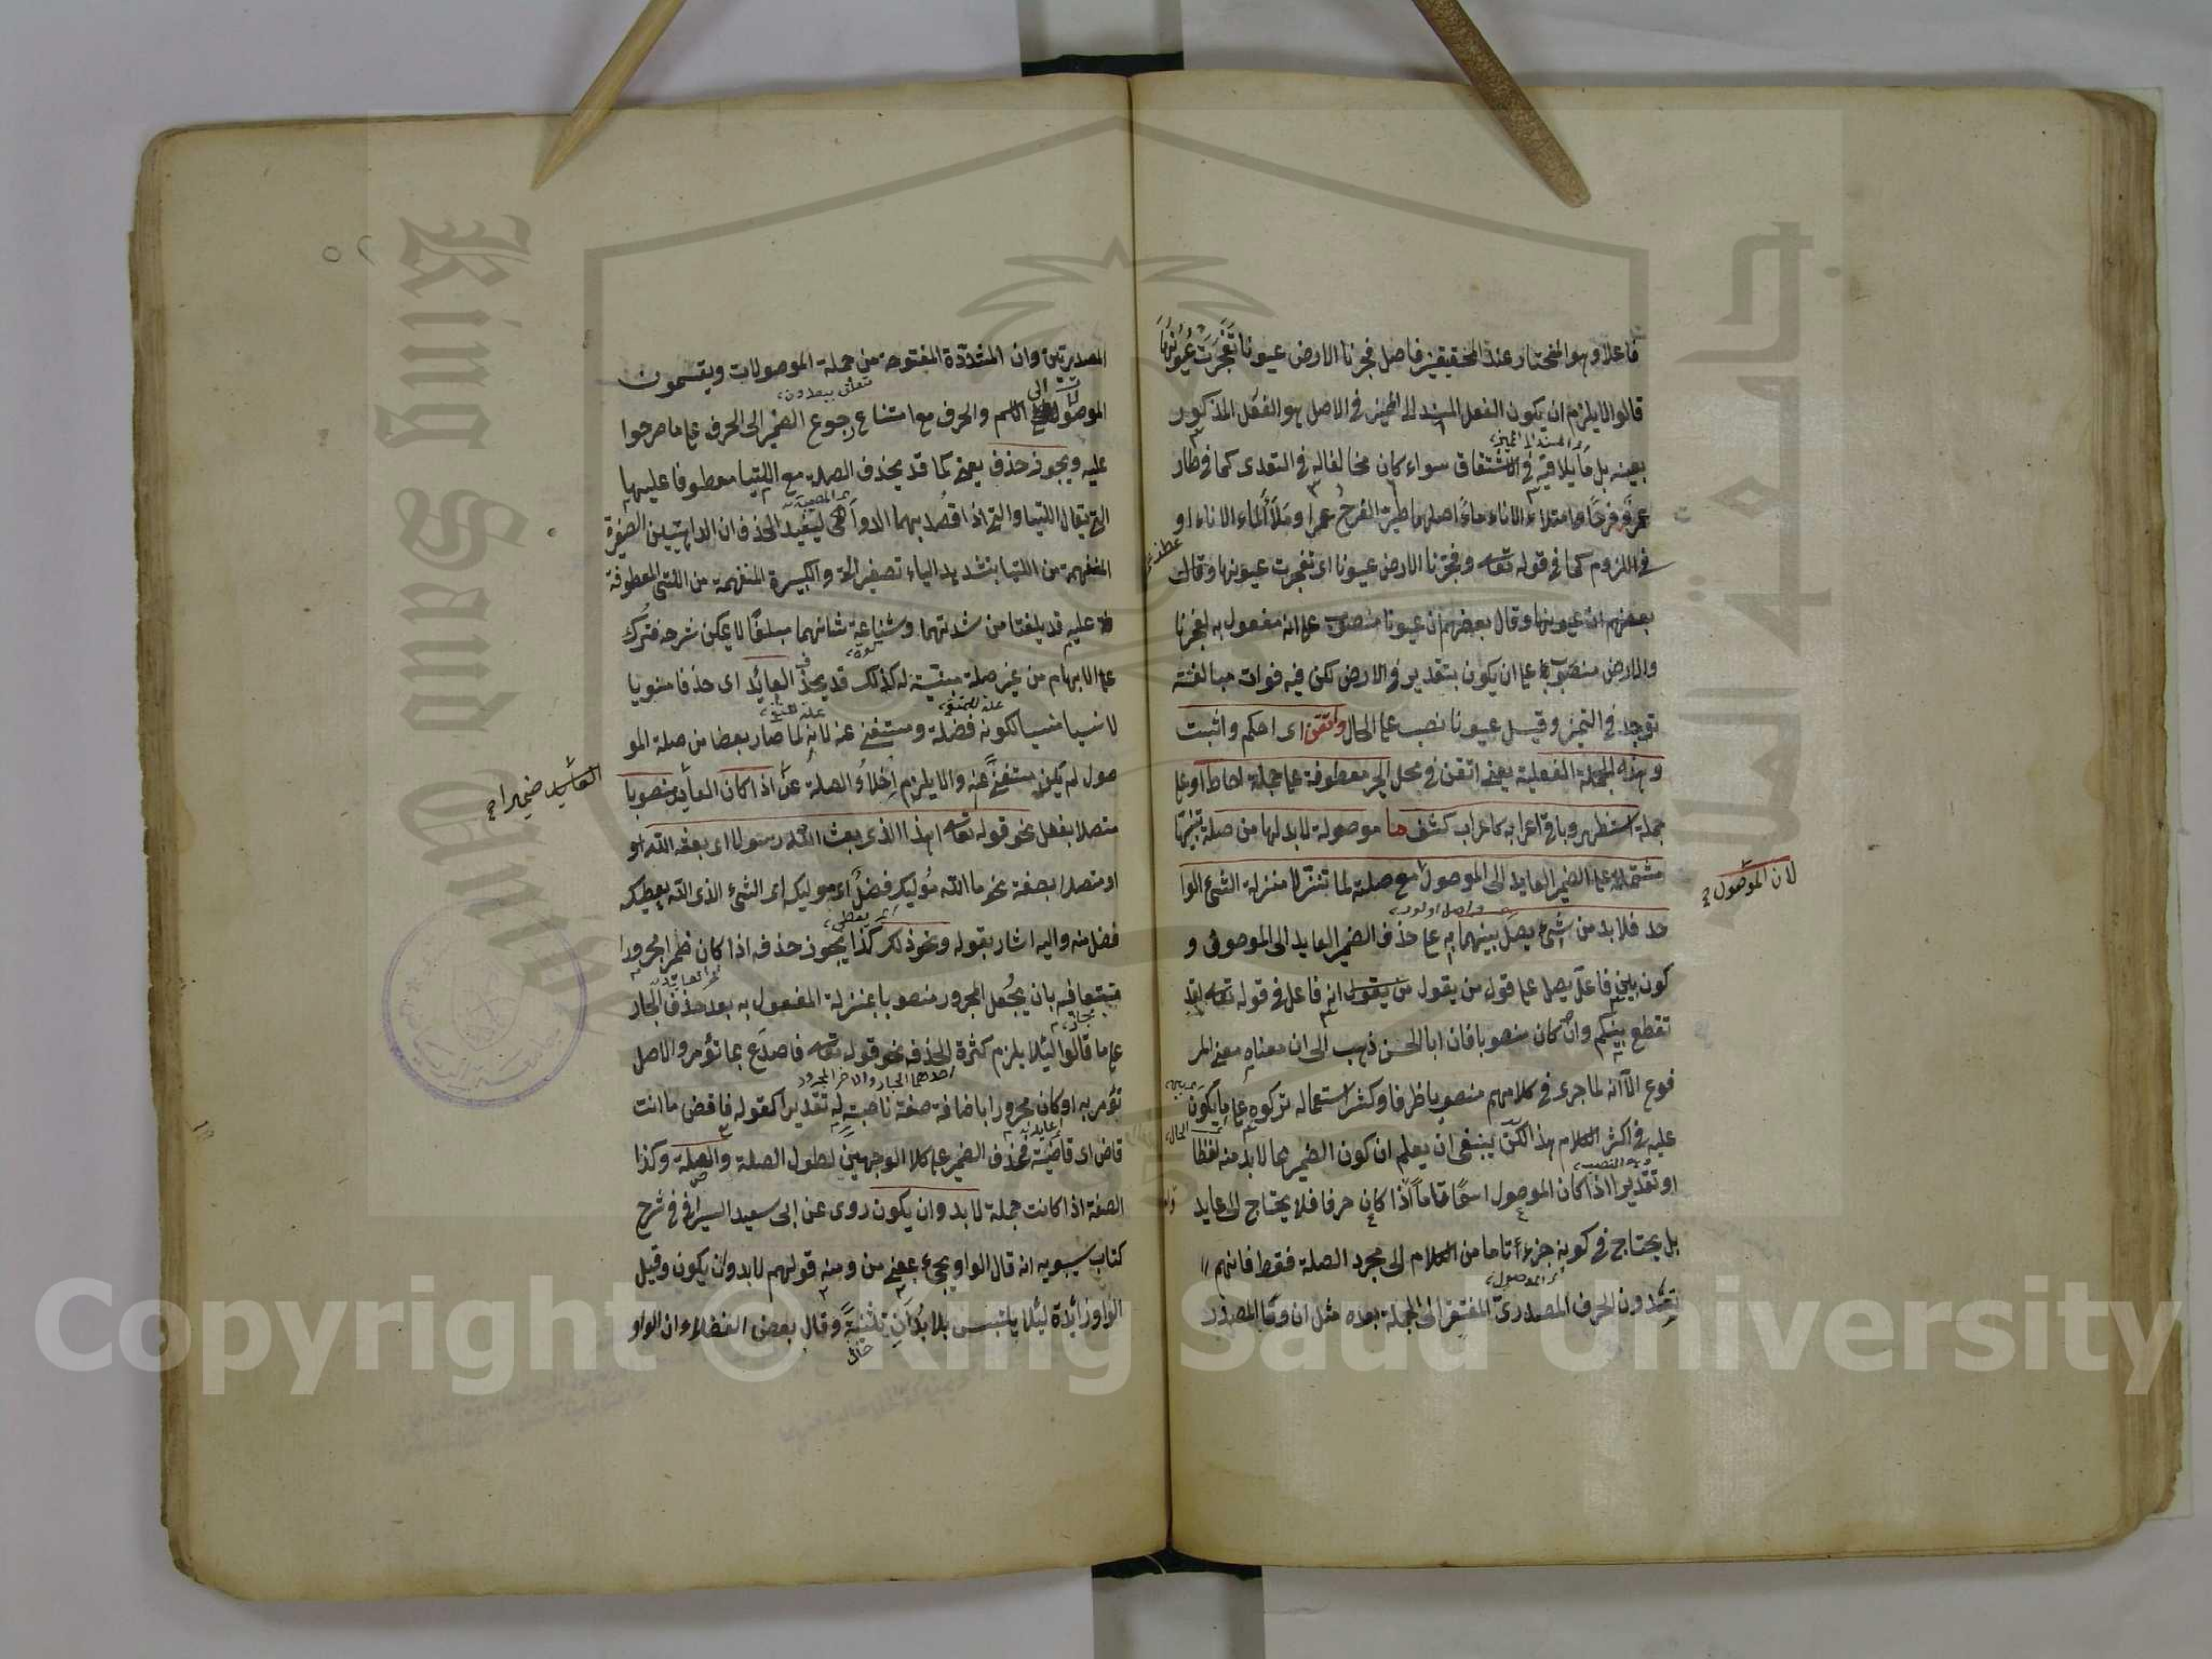 فاعلا وهو المختار عند المحققين فاصل فجرنا الارض عيونا تفجرت عيونها
قالوا لا يلزم ان يكون الفعل المسند الى المميز في الاصل هو الفعل المذكور
بعينه بل ما يلاقيه في الاشتقاق سواء كان مخالفا له في التعدى كما في طار
عمرو فرحا وامتلاء الاناء ماء اصلهما طير الفرح عمرا وملأ الماء الاناء او
في اللزوم كما في قوله تعه وفجرنا الارض عيونا اى تفجرت عيونها وقال
بعضهم ان عيونها وقال بعضهم ان عيونا منصوب على انه مفعول به لفجرنا
والارض منصوب على ان يكون بتقدير في الارض لكن فيه فوات مبالغة
توجد في التميز وقيل عيونا نصب على الحال واتقن اى احكم واثبت
وهذه الجملة الفعلية يعنى اتقن في محل الجر معطوفة على جملة احاط او على
جملة استظهر وباقى اعرابه كاعراب كشف ما موصولة لا بد لها من صلة
مشتملة على الضمير العايد الى الموصول مع صلته لما تنزلا منزلة الشئ الوا
لان الموصول
حد فلا بد من شئ يصل بينهما به على حذف الضمير العايد الى الموصوف و
كون بين فاعل يصل على قول من يقول من يقول انه فاعل في قوله تعه لقد
تقطع بينكم وان كان منصوبا فان ابا الحسن ذهب الى ان معناه معنى المر
فوع الا انه لما جرى في كلامهم منصوبا ظرفا وكثر استعماله تركوه على ما يكون
عليه في اكثر الكلام هذا لكن ينبغى ان يعلم ان كون الضمير مما لا بد منه لفظا
او تقديرا اذا كان الموصول اسما تاما اذا كان حرفا فلا يحتاج الى عايد
بل يحتاج في كونه جزءا تاما من الكلام الى مجرد الصلة فقط فانهم
يعدون الحرف المصدرى المفتقر الى الجملة بعده مثل ان وما المصدر
المصدريتين وان المشددة المفتوحة من جملة الموصولات ويقسمون
الموصول الى الاسم والحرف مع امتناع رجوع الضمير الى الحرف على ما صرحوا
عليه ويجوز حذف يعنى كما قد يحذف الصلة مع اللتيا معطوفا عليها
التى يقال اللتيا والتى اذا قصد بهما الدواهى ليفيد الحذف ان الداهيتين الصغيرة
المنفهمة من اللتيا بتشديد الياء تصغير التى والكبيرة المنفهمة من التى المعطوفة
عليه قد بلغتا من شدتهما وشناعة شانهما مبلغا لا يمكن شرحه فترك
على الابهام من غير صلة مبينة له كذلك قد يحذف العائد اى حذفا منويا
لا نسيا منسيا لكونه فضلة ومستغنى عنه لانه لما صار بعضا من صلة المو
صول لم تكن مستغنى عنه والا يلزم اخلاء الصلة عن اذا كان العايد منصوبا
العائد ضميرا
متصلا بفعل نحو قوله تعه اهذا الذى بعث الله رسولا اى بعثه الله او
او متصلا بصفة نحو ما الله موليك فضل اى موليكه اى الشئ الذى الله يعطيكه
فضل منه واليه اشار بقوله ونحو ذلك كذا يجوز حذفه اذا كان ظهر المجرورا
متبعا فيه بان يجعل المجرور منصوبا بمنزلة المفعول به بعد حذف الجار
على ما قالوا لئلا يلزم كثرة الحذف نحو قوله تعه فاصدع بما تؤمر والاصل
احدهما الجار والاخر المجرور
تؤمر به او كان مجرورا باضافة صفة ناصبة له تقديرا كقوله فاقض ما انت
قاض اى قاضيه فحذف الضمير على كلا الوجهين لطول الصلة والصلة وكذا
الصفة اذا كانت جملة لا بد وان يكون روى عن ابى سعيد السيرافى في شرح
كتاب سيبويه انه قال الواو يجئ بمعنى من ومنه قولهم لا بد وان يكون وقيل
الواو زائدة لئلا يلتبس بلا بدان تثنية وقال بعض الفضلاء ان الواو
Copyright © King Saud University
King Saud University
جامعة الملك
1957